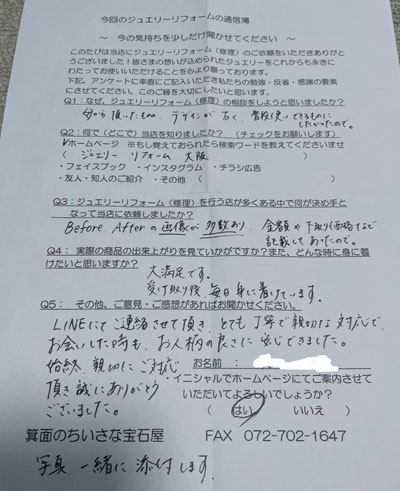 今回のジュエリーリフォームの通信簿
～ 今の気持ちを少しだけ聞かせてください ～
このたびは当店にジュエリーリフォーム（修理）のご依頼をいただきありが
とうございました！皆さまの想いが込められたジュエリーをこれからも永きに
わたってお使いいただけることを心より願っております。
下記、アンケートに率直にご記入いただき私たちの勉強・反省・感謝の要素
にさせていただきます。このご縁を大切にしたいと思います。
Q1：なぜ、ジュエリーリフォーム（修理）の相談をしようと思いましたか？
頂いたもの、デザインが古く、普段使いできるものに
したかったので。
Q2：何で（どこで）当店を知りましたか？ （チェックをお願いします）
✓ホームページ ※もし覚えておられたら検索ワードを教えてくださいませ
（ジュエリー リフォーム 大阪
・フェイスブック ・インスタグラム ・チラシ広告
・友人・知人のご紹介 ・その他（ ）
Q3：ジュエリーリフォーム（修理）を行う店が多くある中で何が決め手と
なって当店に依頼しましたか？
Before、Afterの画像が多数あり、金額や下取り価格まで
記載してあったので。
Q4： 実際の商品の出来上がりを見ていかがですか？また、どんな時に身に着
けたいと思いますか？
大満足です。
受け取り後、毎日身に着けています。
Q5： その他、ご意見・ご感想があればお聞かせください。
LINEにてご連絡させて頂き、とても丁寧で親切な対応で、
お会いした時も、お人柄の良さに安心できました。
始終、親切にご対応
頂き誠にありがとう
ございました。
お名前：
・イニシャルでホームページにてご案内させて
いただいてよろしいでしょうか？
（ はい いいえ ）
箕面のちいさな宝石屋 FAX 072-702-1647
写真一緒に添付します。